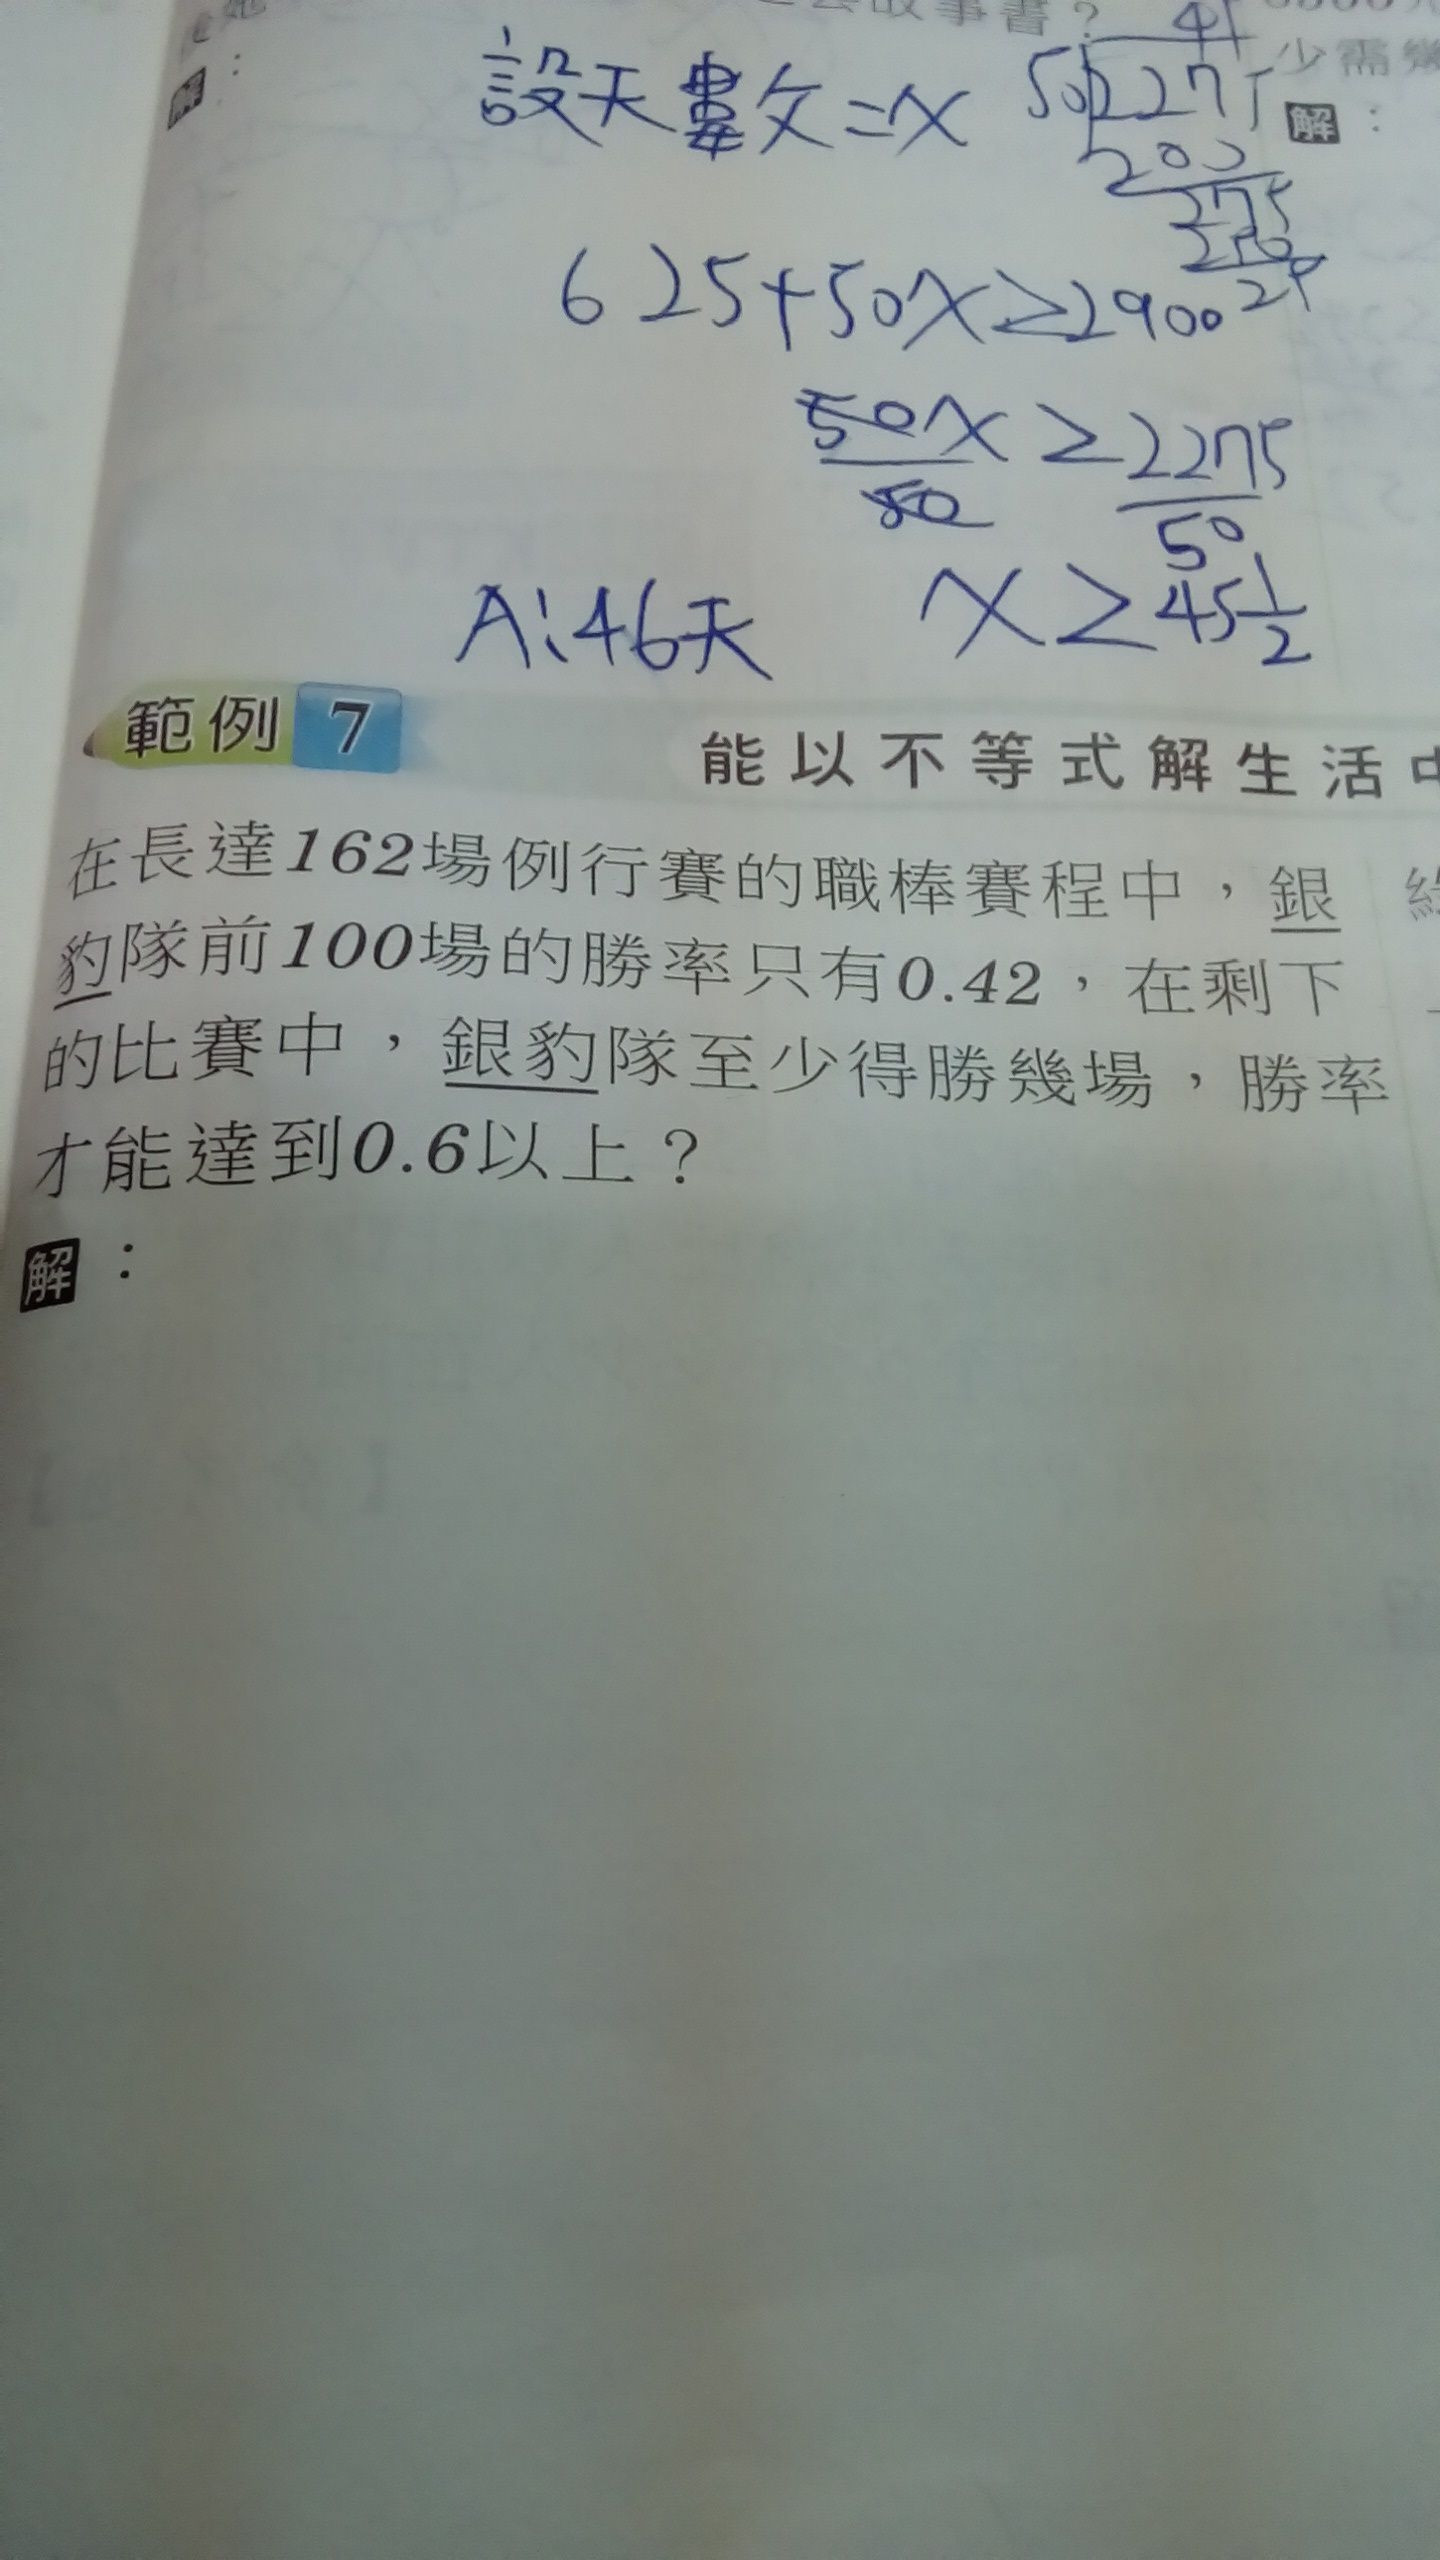 故事書？
解：
設天數=x
50 2275
少需
解：
200
275
250
625+50x≥2900
50x ≥ 2275
50 50
A:46天 x ≥ 45 1/2
範例 7 能以不等式解生活中
在長達162場例行賽的職棒賽程中，銀
豹隊前100場的勝率只有0.42，在剩下
的比賽中，銀豹隊至少得勝幾場，勝率
才能達到0.6以上？
解：